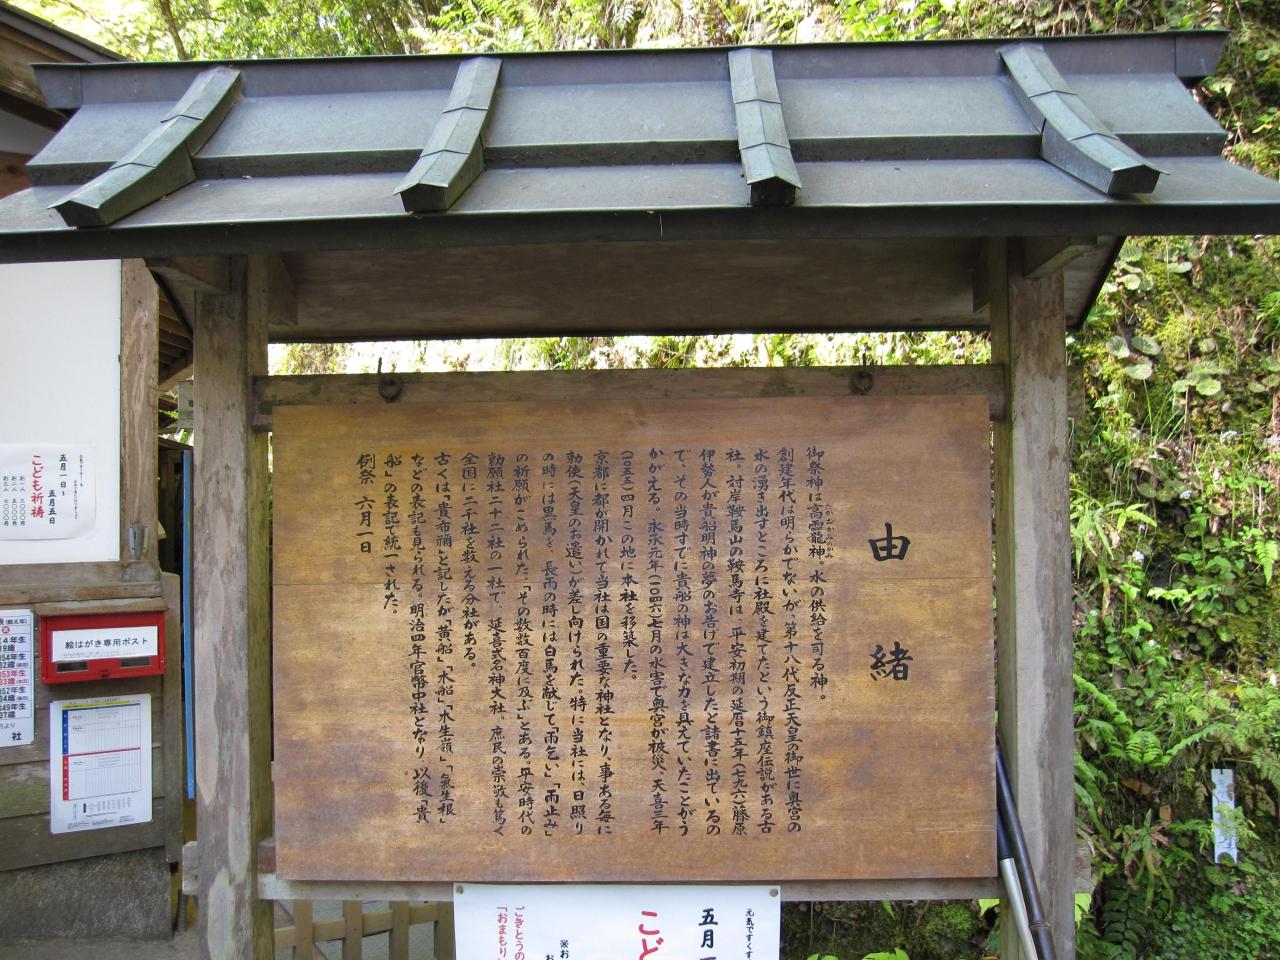 由緒
御祭神は高龗神。水の供給を司る神。
たかおかみのかみ
創建年代は明らかでないが、第十八代反正天皇の御世に奥宮の
水の湧き出すところに社殿を建てたという御鎮座伝説がある古
社。対岸鞍馬山の鞍馬寺は、平安初期の延暦十五年(七九六)藤原
伊勢人が貴船明神の夢のお告げで建立したと諸書に出ているの
で、その当時すでに貴船の神は大きな力を具えていたことがう
かがえる。永承元年(一〇四六)七月の水害で奥宮が被災、天喜三年
(一〇五五)四月この地に本社を移築した。
京都に都が開かれて当社は国の重要な神社となり、事ある毎に
勅使(天皇のお遣い)が差し向けられた。特に当社には、日照り
の時には黒馬を、長雨の時には白馬を献じて「雨乞い」「雨止み」
の祈願がこめられた。「その数数百度に及ぶ」とある。平安時代の
勅願社二十二社の一社で、延喜式名神大社。庶民の崇敬も篤く
全国に二千社を数える分社がある。
古くは「貴布禰」と記したが「黄船」「木船」「木生嶺」「氣生根」
などの表記も見られる。明治四年官幣中社となり、以後「貴
船」の表記で統一された。
例祭 六月一日
五月一日〜
五月五日
こども祈祷
お一人 三、〇〇〇円
お二人 五、〇〇〇円
お三人 七、〇〇〇円
絵はがき専用ポスト
元気ですくす
五月一
こど
※お
ごきとうの
「おまもり